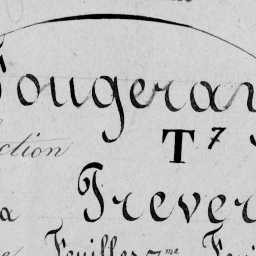 Fougeray
ction T 7
a Trever
Feuille 7me Feui